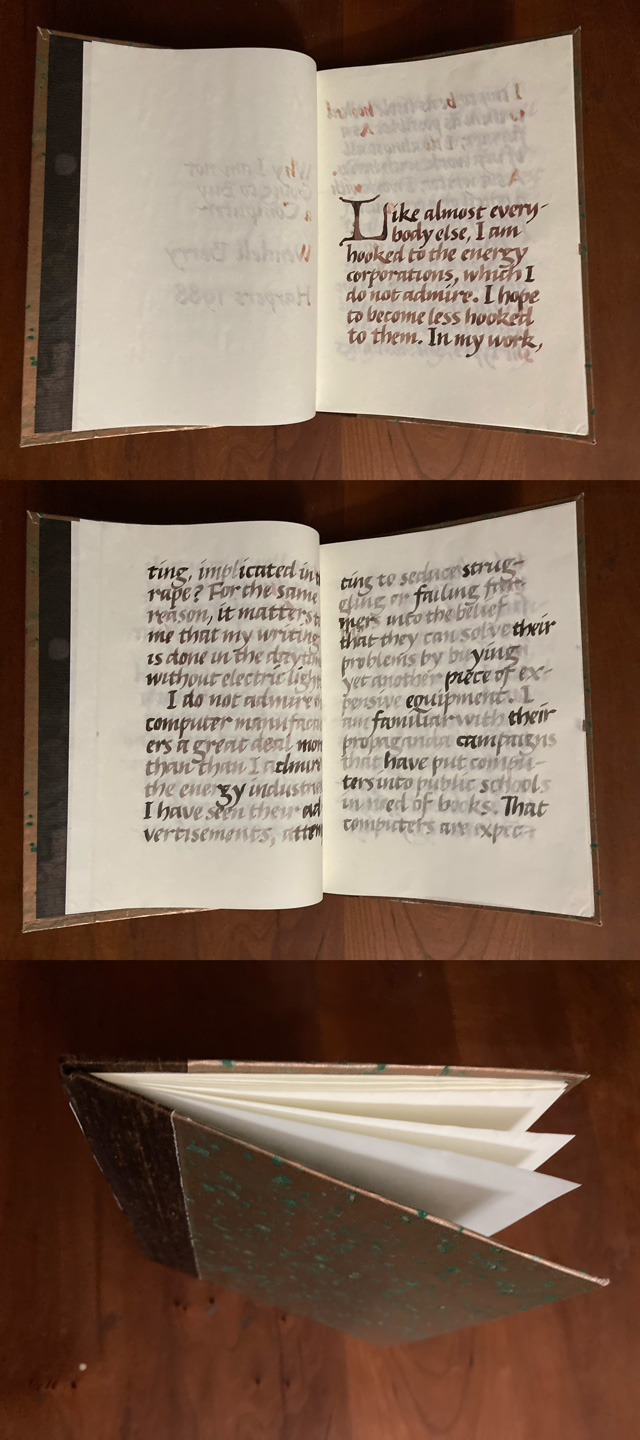 Why I am not
Going to Buy
a Computer
Wendell Berry
Harpers 1988
Like almost every-
body else, I am
hooked to the energy
corporations, which I
do not admire. I hope
to become less hooked
to them. In my work,
ting, implicated in
rape? For the same
reason, it matters
me that my writing
is done in the
without electric
I do not admire
computer
ers a great deal
than than I admire
the energy
I have seen their ad
vertisements,
ting to seduce strug-
gling or failing far-
mers into the belief
that they can solve their
problems by buying
yet another piece of ex-
pensive equipment. I
am familiar with their
propaganda campaigns
that have put compu-
ters into public schools
in need of books. That
computers are expec-